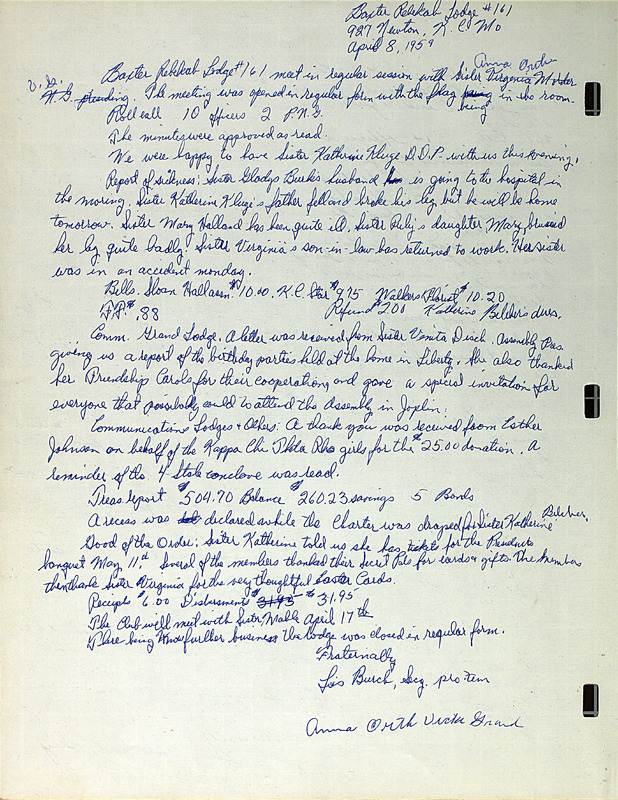 Baxter Rebekah Lodge #161
927 Newton, K.C. Mo
April 8, 1959
Anna Orth
Baxter Rebekah Lodge #161 meet in regular session with Sister Virginia
V. G.
N.G. presiding. The meeting was opened in regular form with the flag being in the room.
Roll call 10 officers 2 P.N.G.
The minutes were approved as read.
We were happy to have Sister Katherine Kluge D.D.P. with us this evening.
Report of sickness: Sister Gladys Burk's husband is going to the hospital in
the morning. Sister Katherine Kluge's father fell and broke his leg but he will be home
tomorrow. Sister Mary Holland has been quite ill. Sister daughter Mary, bruised
her leg quite badly. Sister Virginia's son-in-law has returned to work. Her sister
was in an accident monday.
Bills. Sloan $10.00. K.C. Star $9.75 Walkers Florist $10.20
$.88 Refund $2.00 Katherine Belcher's dues.
Comm. Grand Lodge. A letter was received from Sister Disch. Assembly Pres.
giving us a report of the birthday parties held at the home in Liberty. She also thanked
her Friendship Carols for their cooperation, and gave a special invitation for
everyone that possibly could to attend the Assembly in Joplin.
Communications Lodges & Others: A thank you was received from Esther
Johnson on behalf of the Kappa Chi Theta Rho girls for the $25.00 donation. A
reminder of the 4 State conclave was read.
Treas. report $504.70 Balance $260.23 savings 5 Bonds
A recess was declared while the Charter was draped for Sister Katherine Belcher.
Good of the Order: Sister Katherine told us she has tickets for the Presidents
banquet May 11th. Several of the members thanked their Secret Pals for cards & gifts. The members
then thank Sister Virginia for the very thoughtful Easter Cards.
Receipts $6.00 Disbursments $31.95 $31.95
The Club will meet with Sister April 17th
There being no further business the lodge was closed in regular form.
Fraternally
Lois Burch, Secy. pro-tem
Anna Orth Vice Grand